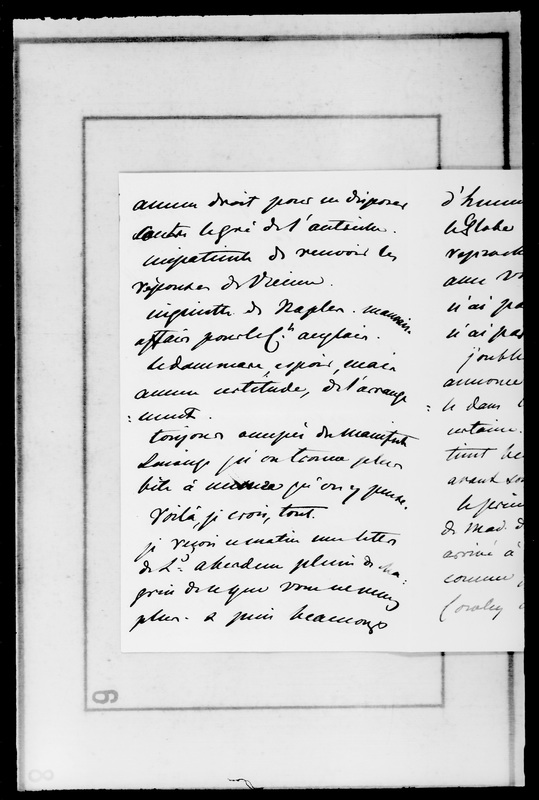 aucun droit pour en disposer
contre le gré de l'autriche.
impatiente de revoir les
réponses de Vienne.
inquiète de Naples. mauvaise
affaire pour le Ct anglais.
le dommare, espoir, mais
aucune certitude, de l'arrange
: ment
toujours occupés du Manifeste
Lorange qu'on trouve plus
bête à mesure qu'on y pense.
Voilà, je crois, tout.
je reçois ce matin une lettre
de Ld aberdeen pleine de cha
grin de ce que vous ne venez
plus. & puis beaucoup
d'hum
le Globe
reproch
n'ai pa
n'ai pas
j'oubli
annonce
: le dans
certaine.
avant son
de Mad. d
arrivé à
comme
Cowley
6
8